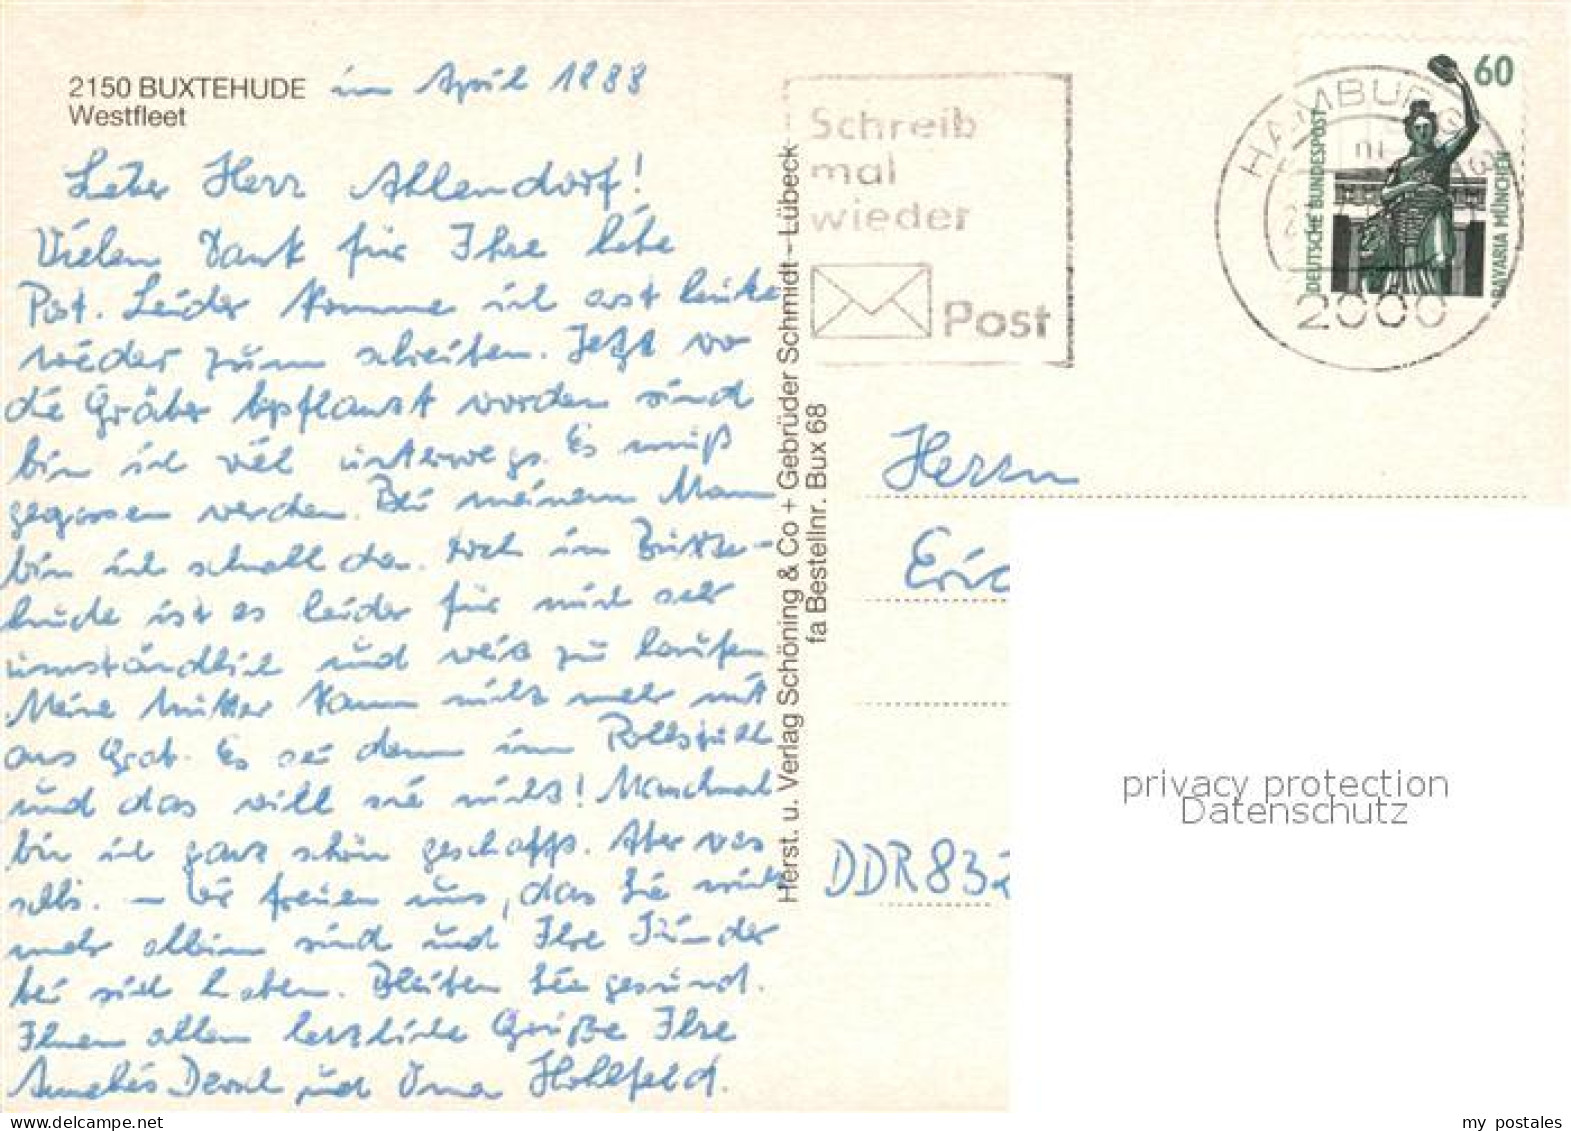 2150 BUXTEHUDE im April 1988
Westfleet
Lieber Herr Ahlendorf!
Vielen Dank für Ihre liebe
Post. Leider komme ich erst heute
wieder zum schreiben. Jetzt wo
die Gräber bepflanzt worden sind
bin ich viel unterwegs. Es muß
gegossen werden. Bei meinem Mann
bin ich schnell da. Doch in Buxte-
hude ist es leider für mich sehr
umständlich und weit zu laufen
Meine Mutter kann nicht mehr mit
ans Grab. Es sei denn im Rollstuhl
und das will sie nicht! Manchmal
bin ich ganz schön geschafft. Aber was
solls. – Wir freuen uns, das Sie nicht
mehr allein sind und Ihre Kinder
bei sich haben. Bleiben Sie gesund.
Ihnen allen herzliche Grüße Ihre
und Oma Hohlfeld.
Herst. u. Verlag Schöning & Co + Gebrüder Schmidt – Lübeck
fa Bestellnr. Bux 68
Schreib
mal
wieder
Post
HAMBURG
2000
60
DEUTSCHE BUNDESPOST
BAVARIA MÜNCHEN
Herrn
Eric
DDR 832
privacy protection
Datenschutz
my-postales.com
my postales